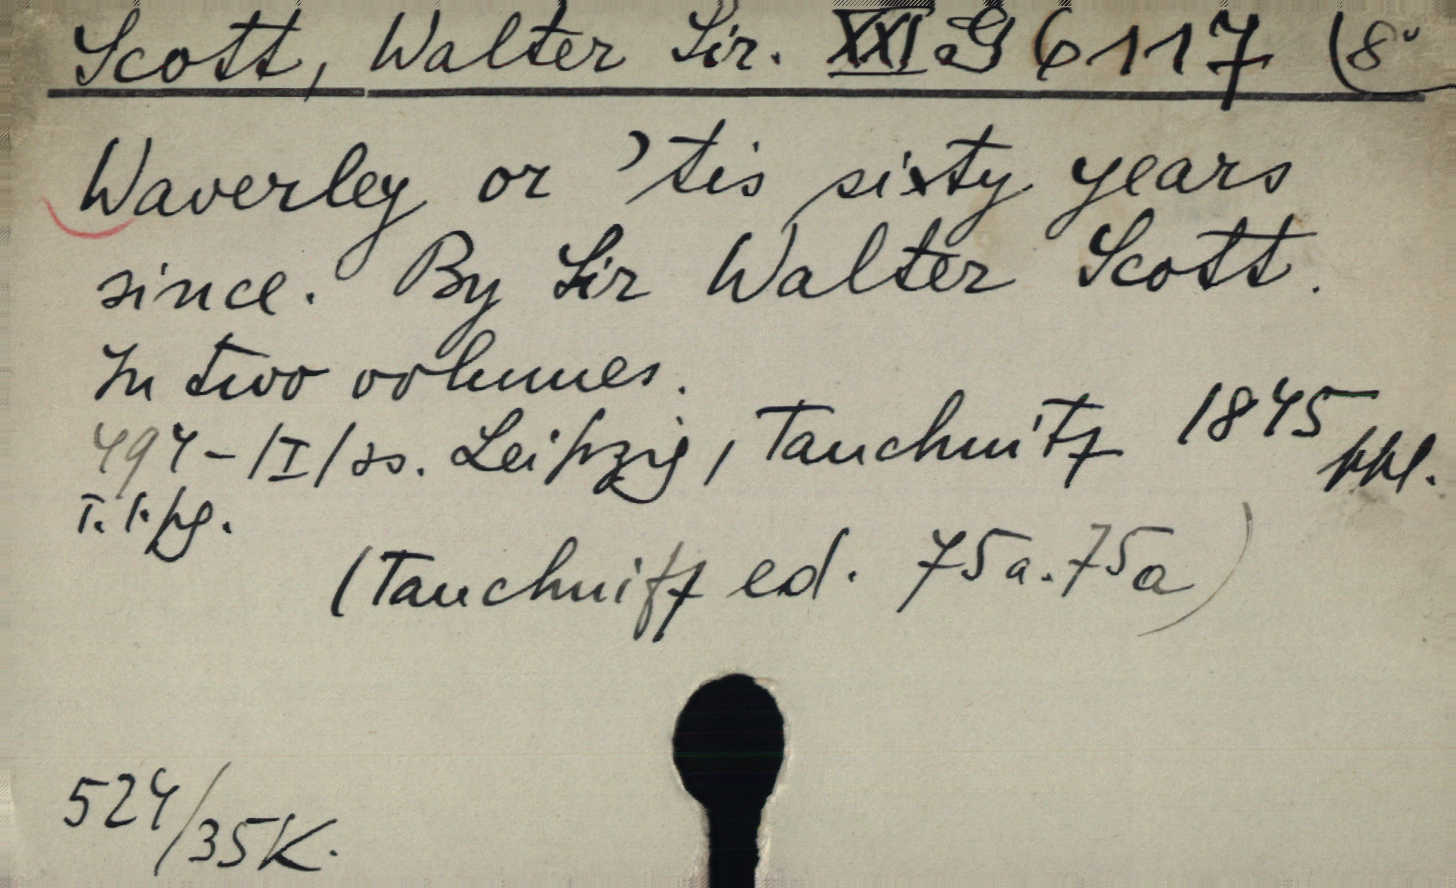 Scott, Walter Sir. XXI G 6117 (8°
Waverley or 'tis sixty years
since. By Sir Walter Scott.
In two volumes.
494-/I/ss. Leipzig, Tauchnitz 1845 ppl.
T. 1. pg.
(Tauchnitz ed. 75a.75a)
524/35K.